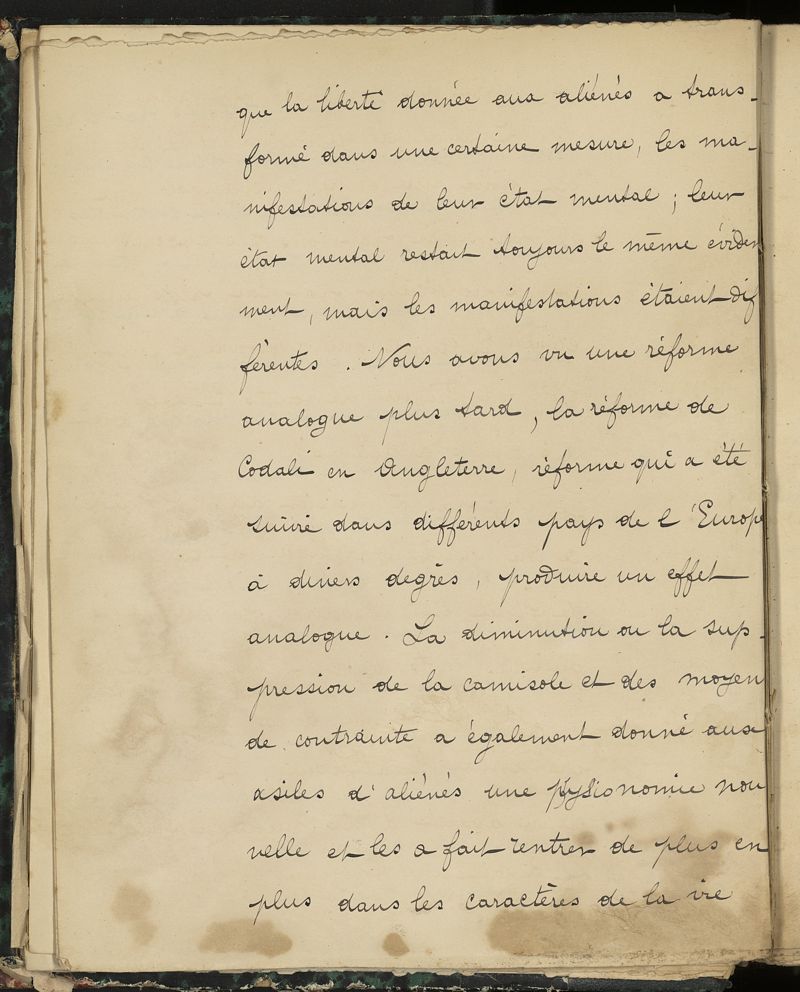 que la liberté donnée aux aliénés a trans-
formé dans une certaine mesure, les ma-
nifestations de leur état mental ; leur
état mental restait toujours le même évidem
ment, mais les manifestations étaient dif
férentes . Nous avons vu une réforme
analogue plus tard, la réforme de
Codali en Angleterre, réforme qui a été
suivie dans différents pays de l'Europe
à divers degrés, produire un effet
analogue. La diminution ou la sup-
pression de la camisole et des moyen
de contrainte a également donné aux
asiles d'aliénés une physionomie nou
velle et les a fait rentrer de plus en
plus dans les caractères de la vie